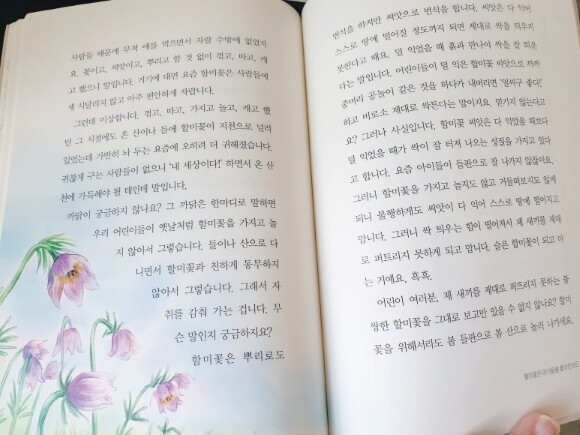 사람들 때문에 무척 애를 먹으면서 자랄 수밖에 없었지
요. 꽃이고, 씨앗이고, 뿌리고 할 것 없이 꺾고, 따고, 캐
고 했으니 말입니다. 거기에 대면 요즘 할미꽃은 사람들에
게 시달리지 않고 아주 편안하게 자랍니다.
그런데 이상합니다. 꺾고, 따고, 가지고 놀고, 캐고 했
던 그 시절에도 온 산이나 들에 할미꽃이 지천으로 널려
있었는데 가만히 놔 두는 요즘에 오히려 더 귀해졌습니다.
귀찮게 구는 사람들이 없으니 '내 세상이다!' 하면서 온 산
천에 가득해야 될 텐데 말입니다.
까닭이 궁금하지 않나요? 그 까닭은 한마디로 말하면
우리 어린이들이 옛날처럼 할미꽃을 가지고 놀
지 않아서 그렇습니다. 들이나 산으로 다
니면서 할미꽃과 친하게 동무하지
않아서 그렇습니다. 그래서 자
취를 감춰 가는 겁니다. 무
슨 말인지 궁금하지요?
할미꽃은 뿌리로도
번식을 하지만 씨앗으로 번식을 합니다. 씨앗은 다 익어
스스로 땅에 떨어질 정도까지 되면 제대로 싹을 틔우지
못한다고 해요. 덜 익었을 때 흙과 만나야 싹을 잘 틔운
다는 말입니다. 어린이들이 덜 익은 할미꽃 씨앗으로 까까
중머리 공놀이 같은 것을 하다가 내버리면 '얼씨구 좋다!'
하고 비로소 제대로 싹튼다는 말이지요. 믿기지 않는다고
요? 그러나 사실입니다. 할미꽃 씨앗은 다 익었을 때보다
덜 익었을 때가 싹이 잘 터져 나오는 성질을 가지고 있다
고 합니다. 요즘 아이들이 들판으로 잘 나가지 않잖아요.
그러니 할미꽃을 가지고 놀지도 않고 거들떠보지도 않게
되니 불행하게도 씨앗이 다 익어 스스로 땅에 떨어지고
맙니다. 그러니 싹 틔우는 힘이 떨어져서 제 새끼를 제대
로 퍼트리지 못하게 되고 맙니다. 슬픈 할미꽃이 되고 마
는 거예요. 흑흑.
어린이 여러분, 제 새끼를 제대로 퍼트리지 못하는 불
쌍한 할미꽃을 그대로 보고만 있을 수 없지 않나요? 할미
꽃을 위해서라도 봄 들판으로 봄 산으로 놀러 나가세요.
할미꽃은 아이들을